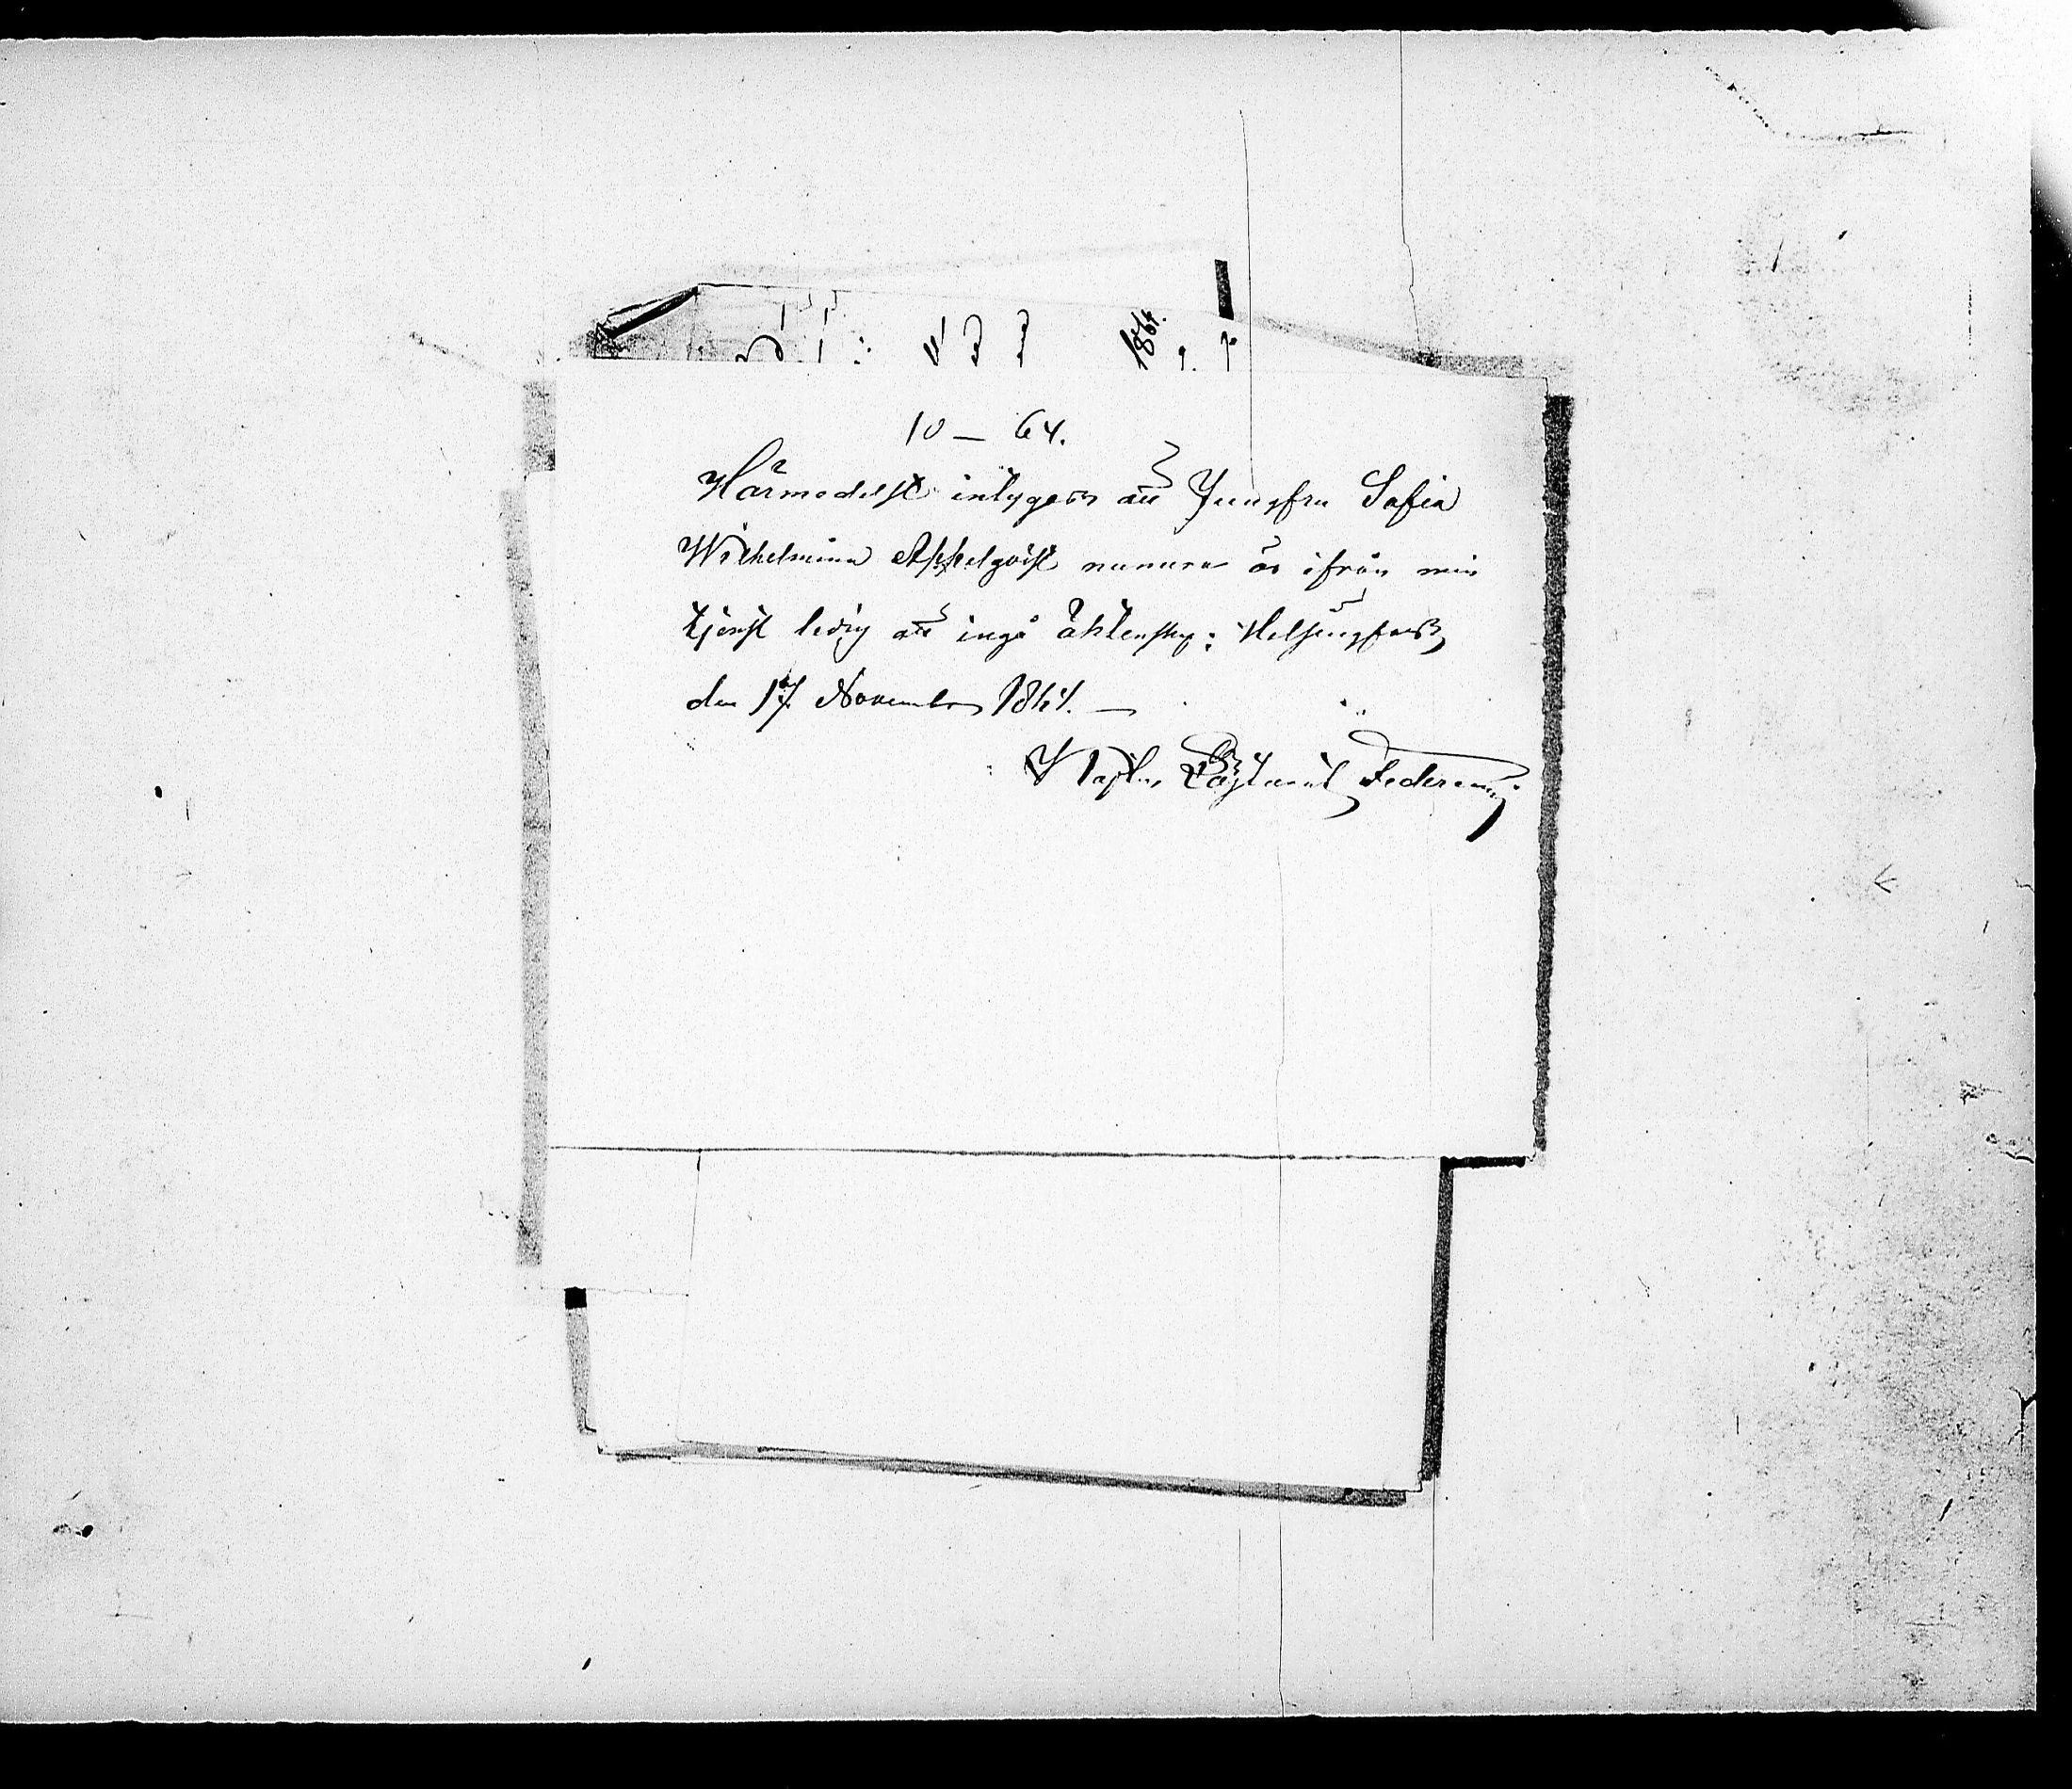 1864.
10 — 64.
Härmedelst intygas att Jungfru Sofia
Wilhelmina Appelqvist numera är ifrån min
tjenst ledig att ingå äktenskap; Helsingfors
den 17 November 1864. —